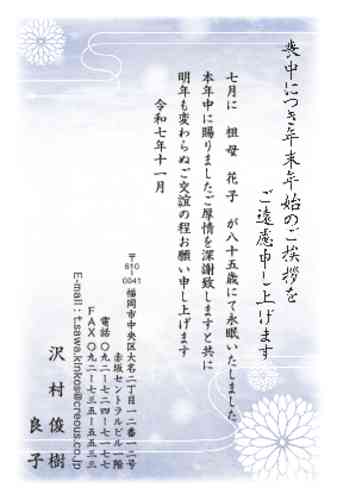 喪中につき年末年始のご挨拶を
ご遠慮申し上げます
七月に　祖母　花子　が八十五歳にて永眠いたしました
本年中に賜りましたご厚情を深謝致しますと共に
明年も変わらぬご交誼の程お願い申し上げます
令和七年十一月
〒810-0041
福岡市中央区大名二丁目一二番一二号
赤坂セントラルビル一階
電話　〇九二ー七二四ー七一七七
ＦＡＸ　〇九二ー七三五ー五五三三
E-mail：t.sawa.kinkos@creous.co.jp
沢村　俊樹
良子